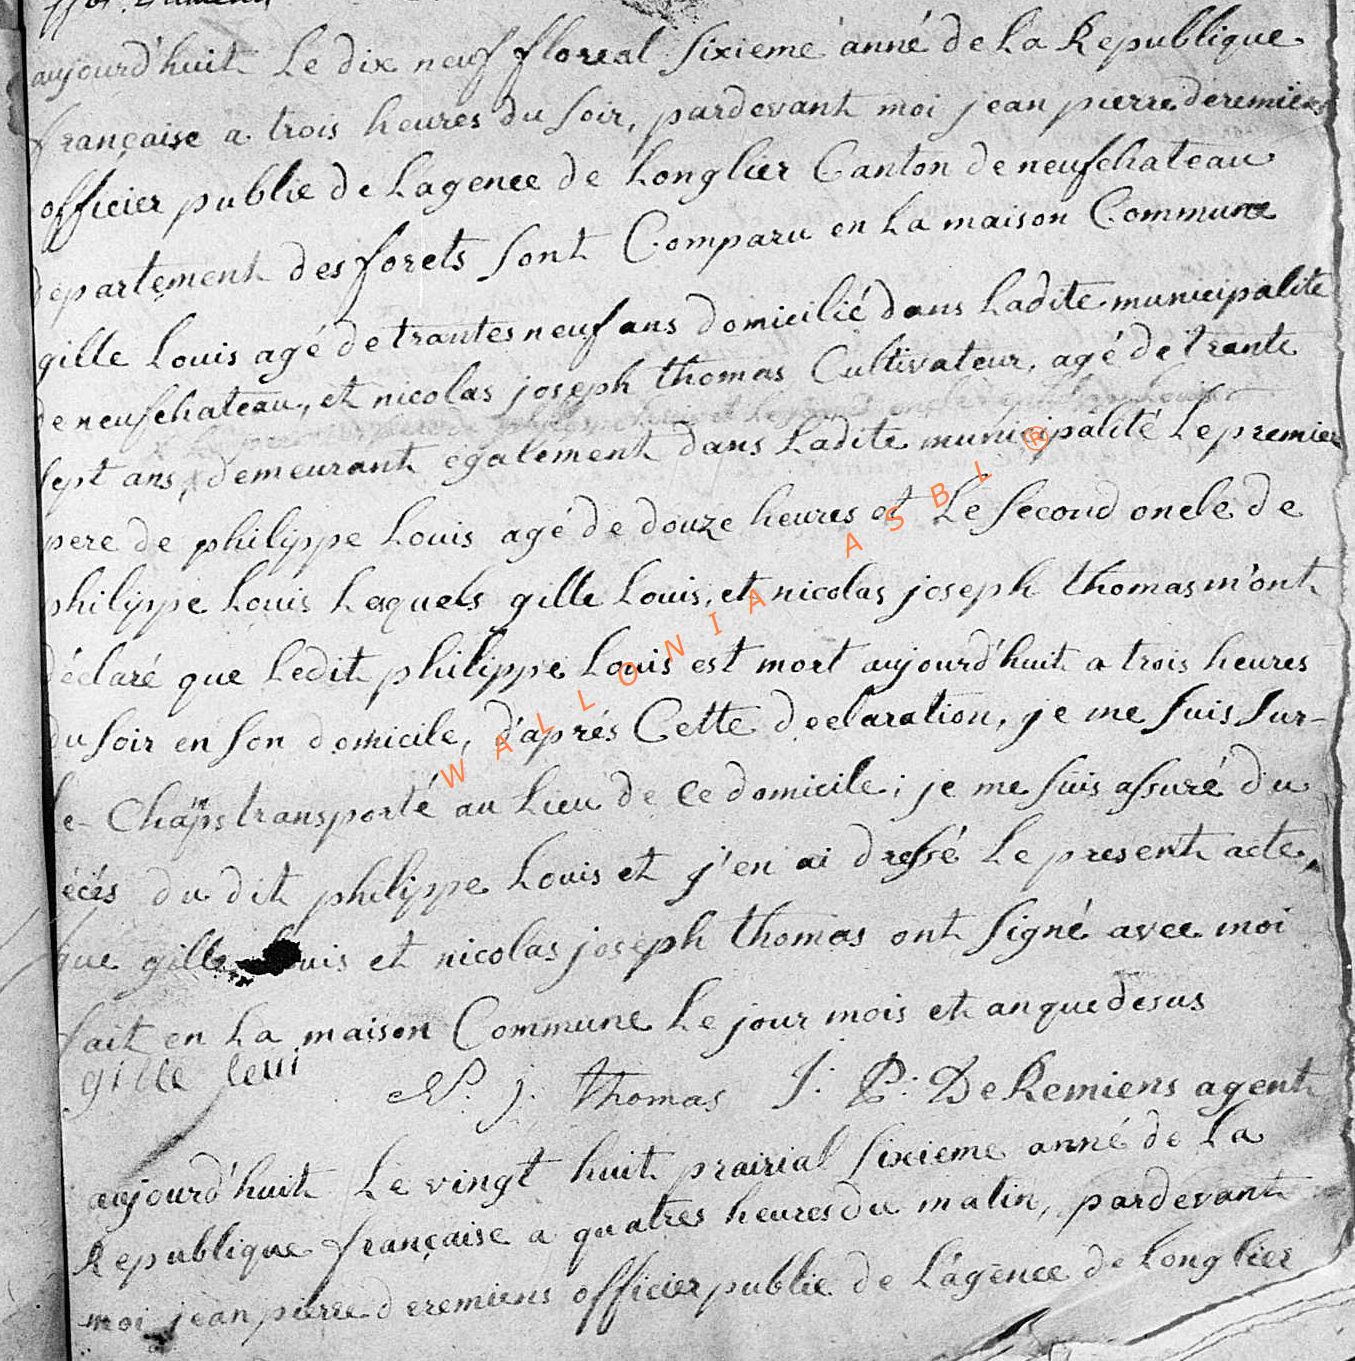 aujourd'huit Le dix neuf floreal Sixieme anné de La Republique
française a trois heures du Soir, pardevant moi jean pierre deremiens
officier public de Lagence de Longlier Canton de neufchateau
departement des forets Sont Comparu en La maison Commune
gille Louis agé de trantes neuf ans domicilié dans Ladite municipalite
de neufchateau, et nicolas joseph thomas Cultivateur, agé de trante
sept ans, demeurant egalement dans Ladite municipalité Le premier
pere de philippe Louis agé de douze heures et Le Second oncle de
philippe Louis Lesquels gille Louis, et nicolas joseph thomas m'ont
déclaré que Ledit philippe Louis est mort aujourd'huit a trois heures
du Soir en Son domicile, d'après Cette declaration, je me Suis Sur-
le-Champs transporté au Lieu de Ce domicile; je me Suis assuré du
décés du dit philippe Louis et j'en ai dressé Le present acte,
que gille Louis et nicolas joseph thomas ont Signé avec moi
fait en La maison Commune Le jour mois et an que desus
gille loui
N. j. thomas J. P. De Remiens agent
aujourd'huit Le vingt huit prairial Sixieme anné de La
Republique française a quatres heures du matin, pardevant
moi jean pierre deremiens officier public de L'agence de Longlier
WALLONIA ASBL ®